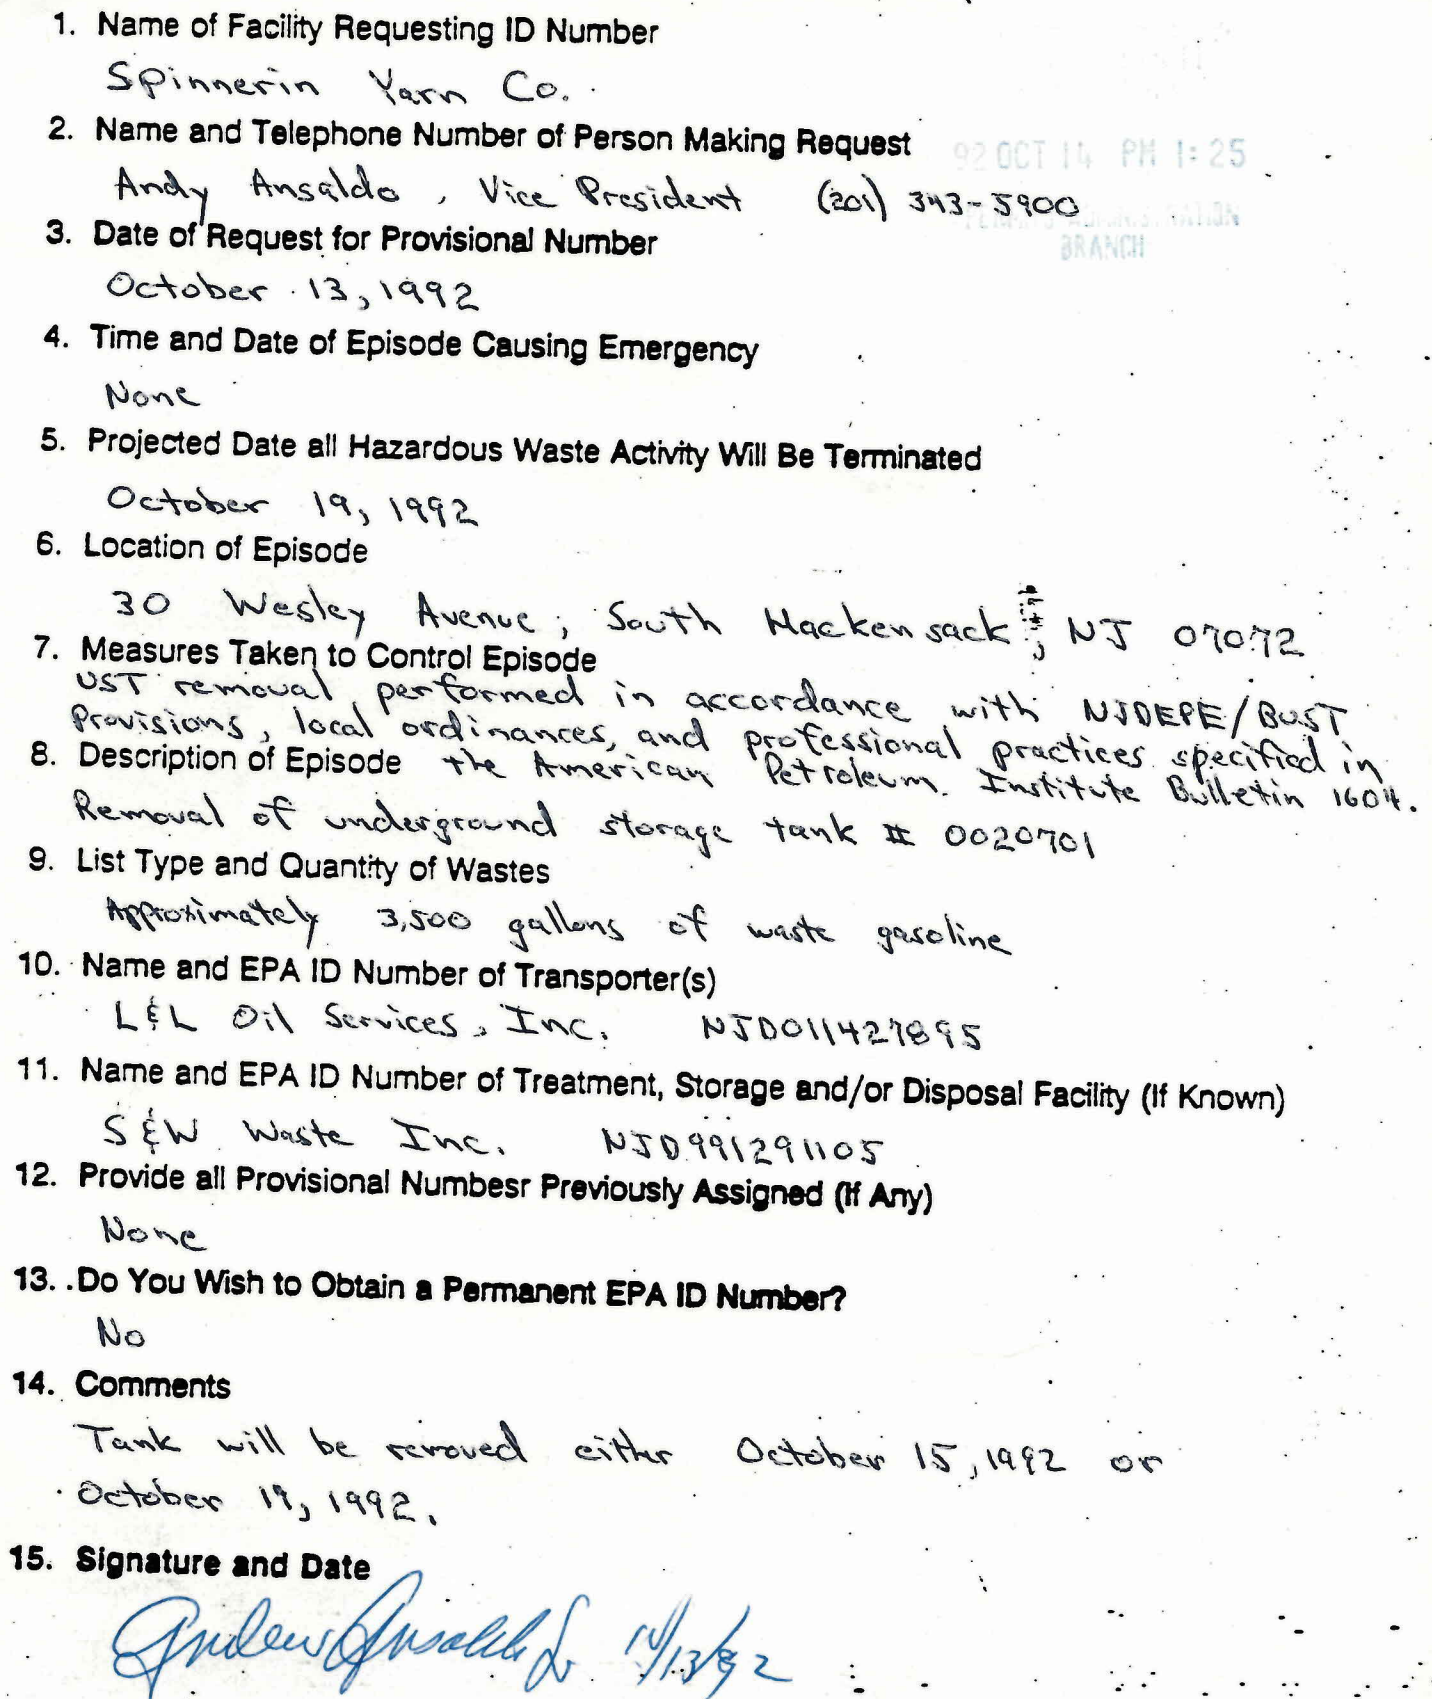 1. Name of Facility Requesting ID Number
Spinnerin Yarn Co.
2. Name and Telephone Number of Person Making Request
92 OCT 14 PM 1:25
Andy Ansaldo, Vice President (201) 343-5900
3. Date of Request for Provisional Number
BRANCH
October 13, 1992
4. Time and Date of Episode Causing Emergency
None
5. Projected Date all Hazardous Waste Activity Will Be Terminated
October 19, 1992
6. Location of Episode
30 Wesley Avenue, South Hackensack, NJ 07072
7. Measures Taken to Control Episode
UST removal performed in accordance with NJDEPE/BUST
Provisions, local ordinances, and professional practices specified in
8. Description of Episode the American Petroleum Institute Bulletin 1604.
Removal of underground storage tank # 0020701
9. List Type and Quantity of Wastes
Approximately 3,500 gallons of waste gasoline
10. Name and EPA ID Number of Transporter(s)
L&L Oil Services, Inc. NJD011427895
11. Name and EPA ID Number of Treatment, Storage and/or Disposal Facility (If Known)
S&W Waste Inc. NJD991291105
12. Provide all Provisional Numbesr Previously Assigned (If Any)
None
13. Do You Wish to Obtain a Permanent EPA ID Number?
No
14. Comments
Tank will be removed either October 15, 1992 or
October 19, 1992.
15. Signature and Date
Andrew Ansaldo Jr 10/13/92